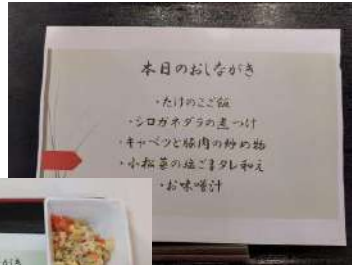 本日のおしながき
・たけのこご飯
・シロガネダラの煮つけ
・キャベツと豚肉の炒め物
・小松菜の塩ごまタレ和え
・お味噌汁